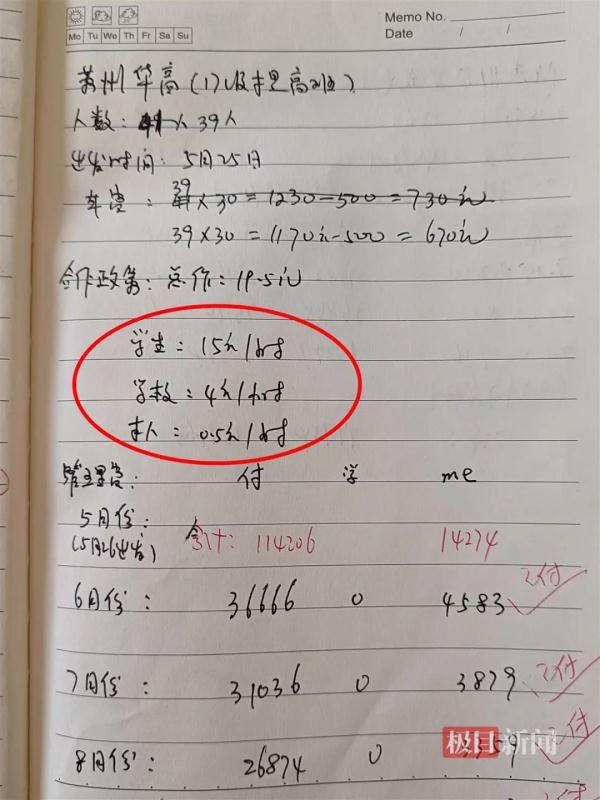 Memo No.
Mo Tu We Th Fr Sa Su
Date / /
苏州华高(17级
人数: 41人 39人
出发时间: 5月25日
39
车费: 41×30=1230-500=730元
39×30=1170元-500=670元
合作政策: 总价: 19.5元
学生: 15元/
学校: 4元/
本人: 0.5元/
管理费: 付 学 me
5月份:
(5月26出发) 合计: 114206 14274
6月份: 36666 0 4583 已付
7月份: 31036 0 3879 已付
8月份: 26874 0 59 已付
极目新闻